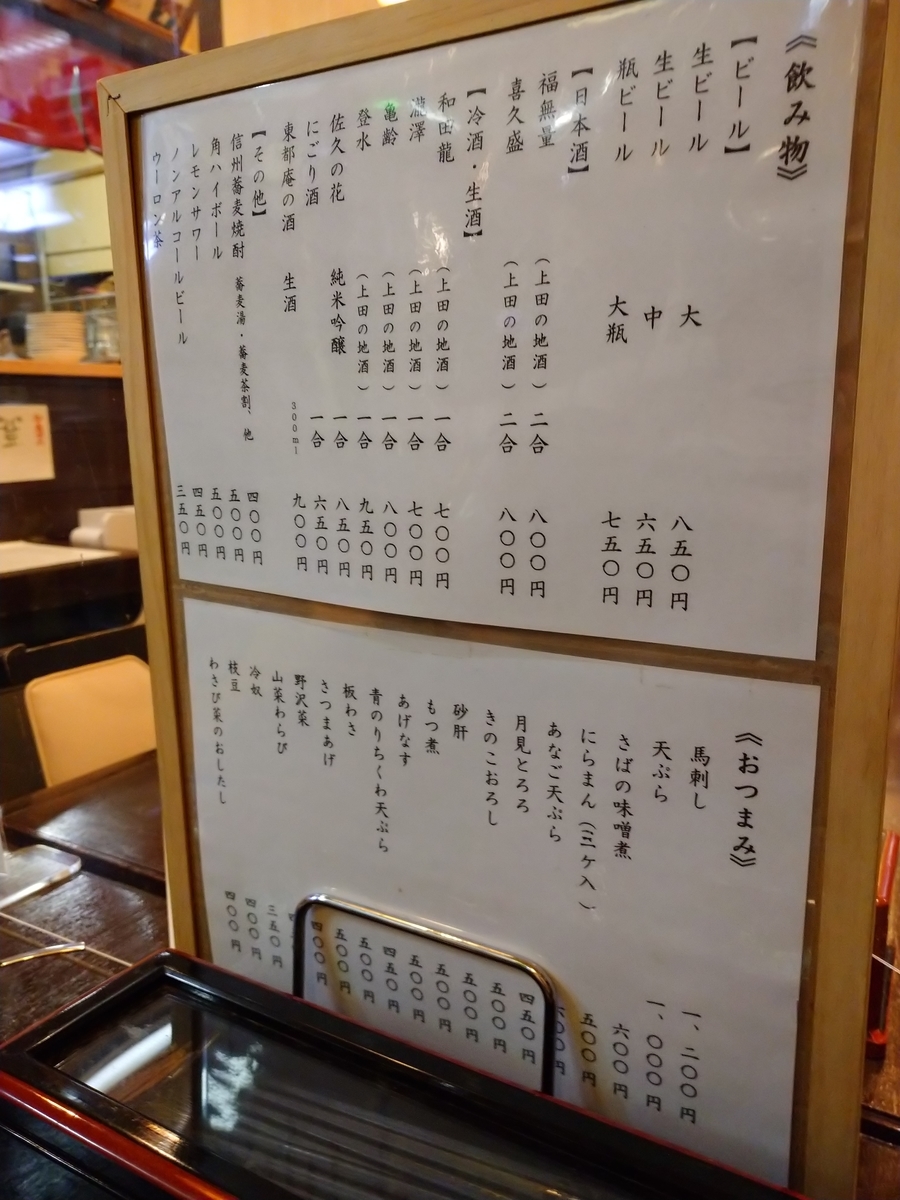 《飲み物》
【ビール】
生ビール 大 八五〇円
生ビール 中 六五〇円
瓶ビール 大瓶 七五〇円
【日本酒】
福無量 (上田の地酒) 二合 八〇〇円
喜久盛 (上田の地酒) 二合 八〇〇円
【冷酒・生酒】
和田龍 (上田の地酒) 一合 七〇〇円
瀧澤 (上田の地酒) 一合 七〇〇円
亀齢 (上田の地酒) 一合 八〇〇円
登水 (上田の地酒) 一合 九五〇円
佐久の花 純米吟醸 一合 八五〇円
にごり酒 一合 六五〇円
東都庵の酒 生酒 300ml 九〇〇円
【その他】
信州蕎麦焼酎 蕎麦湯・蕎麦茶割、他 四〇〇円
角ハイボール 五〇〇円
レモンサワー 五〇〇円
ノンアルコールビール 四五〇円
ウーロン茶 三五〇円
《おつまみ》
馬刺し 一、二〇〇円
天ぷら 一、〇〇〇円
さばの味噌煮 六〇〇円
にらまん(三ケ入) 五〇〇円
あなご天ぷら
月見とろろ 四五〇円
きのこおろし 五〇〇円
砂肝 五〇〇円
もつ煮 五〇〇円
あげなす 五〇〇円
青のりちくわ天ぷら 四五〇円
板わさ 五〇〇円
さつまあげ 五〇〇円
野沢菜 四〇〇円
山菜わらび
冷奴 三五〇円
枝豆 四〇〇円
わさび菜のおしたし 四〇〇円